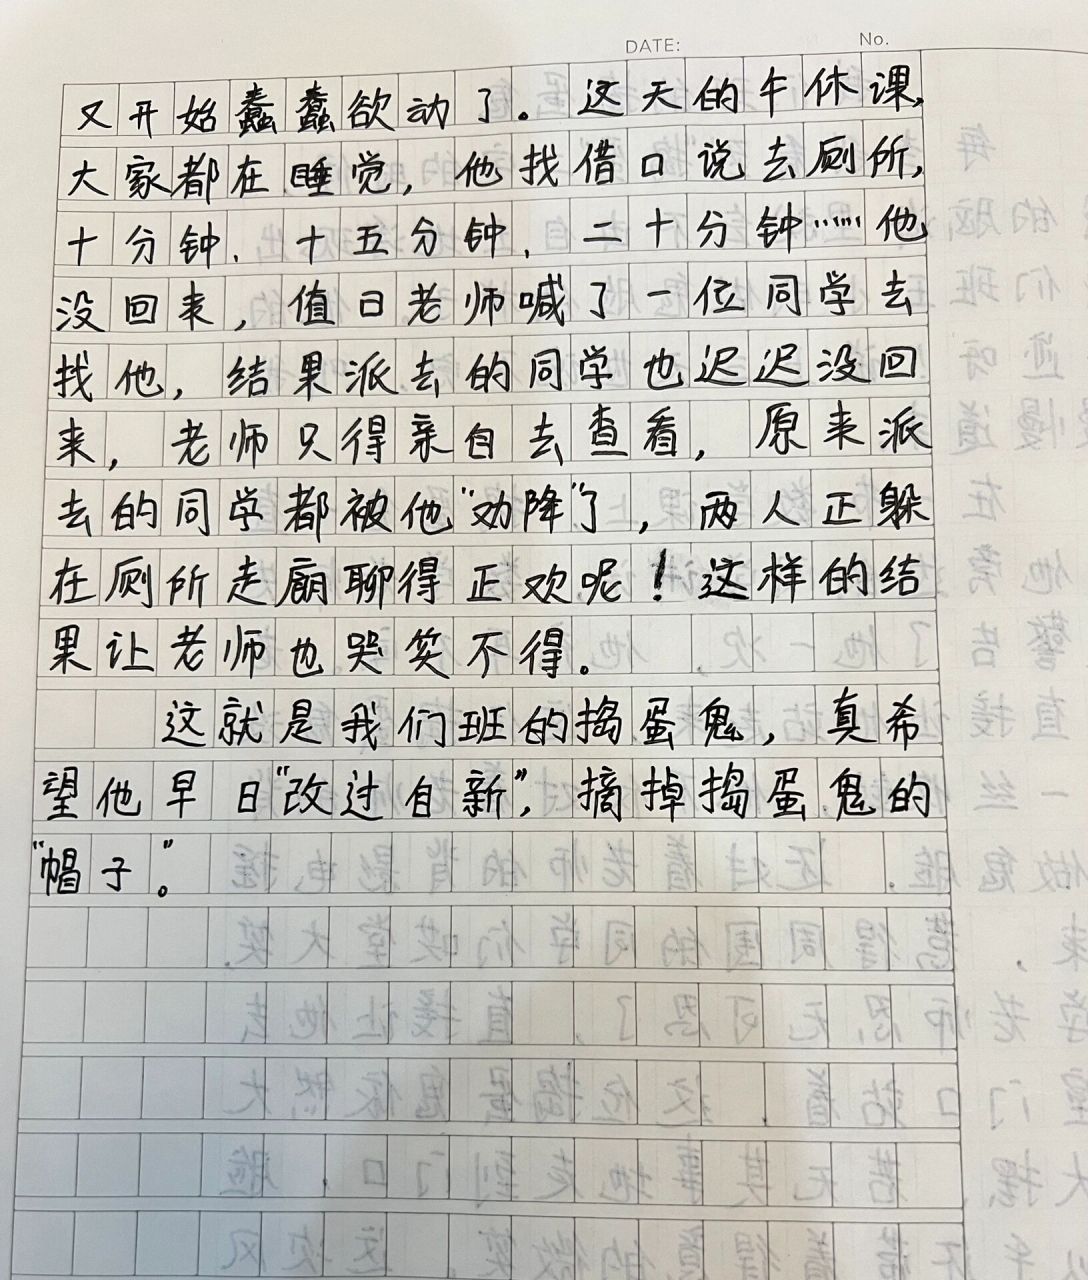 DATE: No.
又开始蠢蠢欲动了。这天的午休课,
大家都在睡觉,他找借口说去厕所,
十分钟、十五分钟、二十分钟……他
没回来,值日老师喊了一位同学去
找他,结果派去的同学也迟迟没回
来,老师只得亲自去查看,原来派
去的同学都被他“劝降”了,两人正躲
在厕所走廊聊得正欢呢!这样的结
果让老师也哭笑不得。
这就是我们班的捣蛋鬼,真希
望他早日“改过自新”,摘掉捣蛋鬼的
“帽子”。